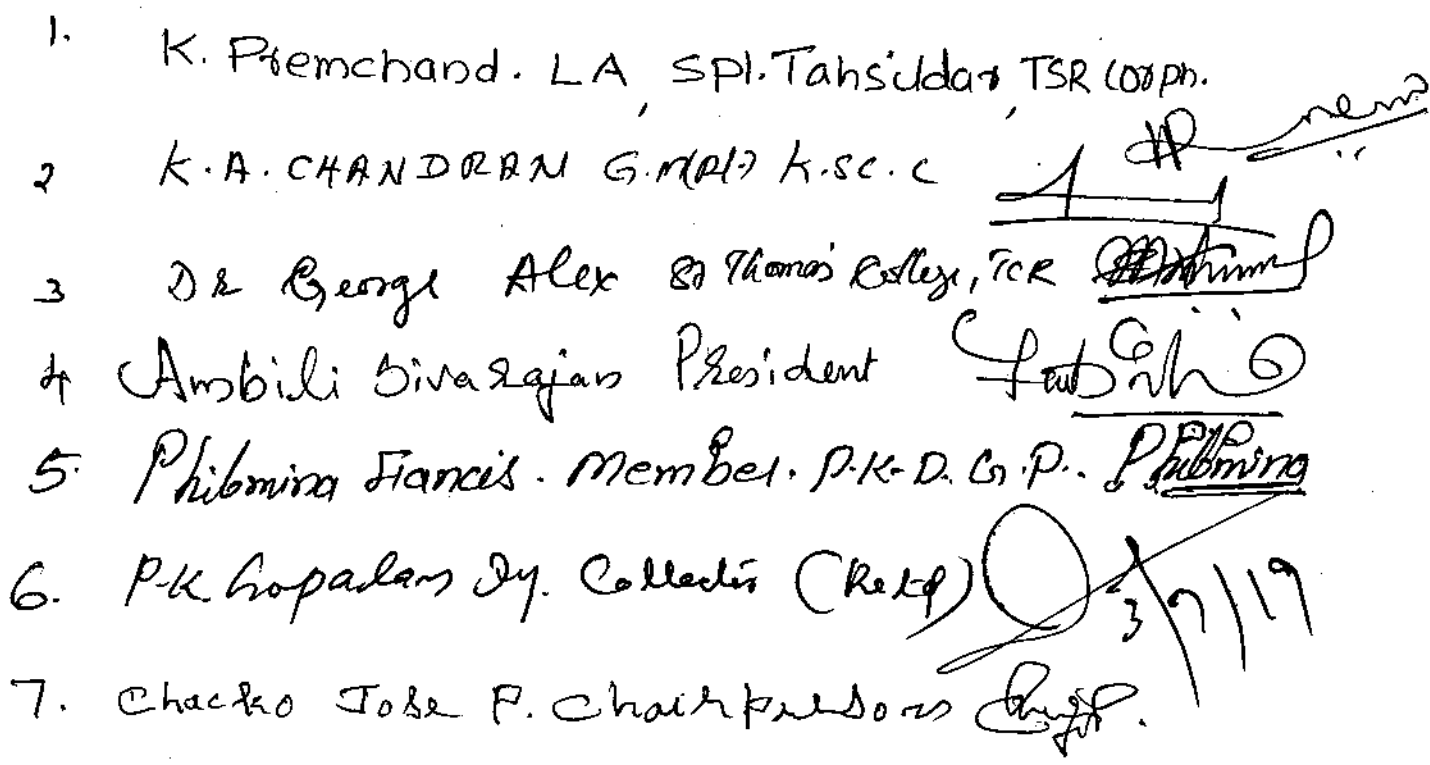 1. K. Premchand. LA, Spl. Tahsildar, TSR Corpn.
2 K.A. CHANDRAN G.M(Rtd) K.SC.C
3 Dr George Alex St Thomas College, TCR
4 Ambili Sivarajan President
5. Philomina Francis. Member. P.K.D.G.P. Philomina
6. P.K. Gopalan Dy. Collector (Retd) 3/7/19
7. Chacko Jose P. Chairperson